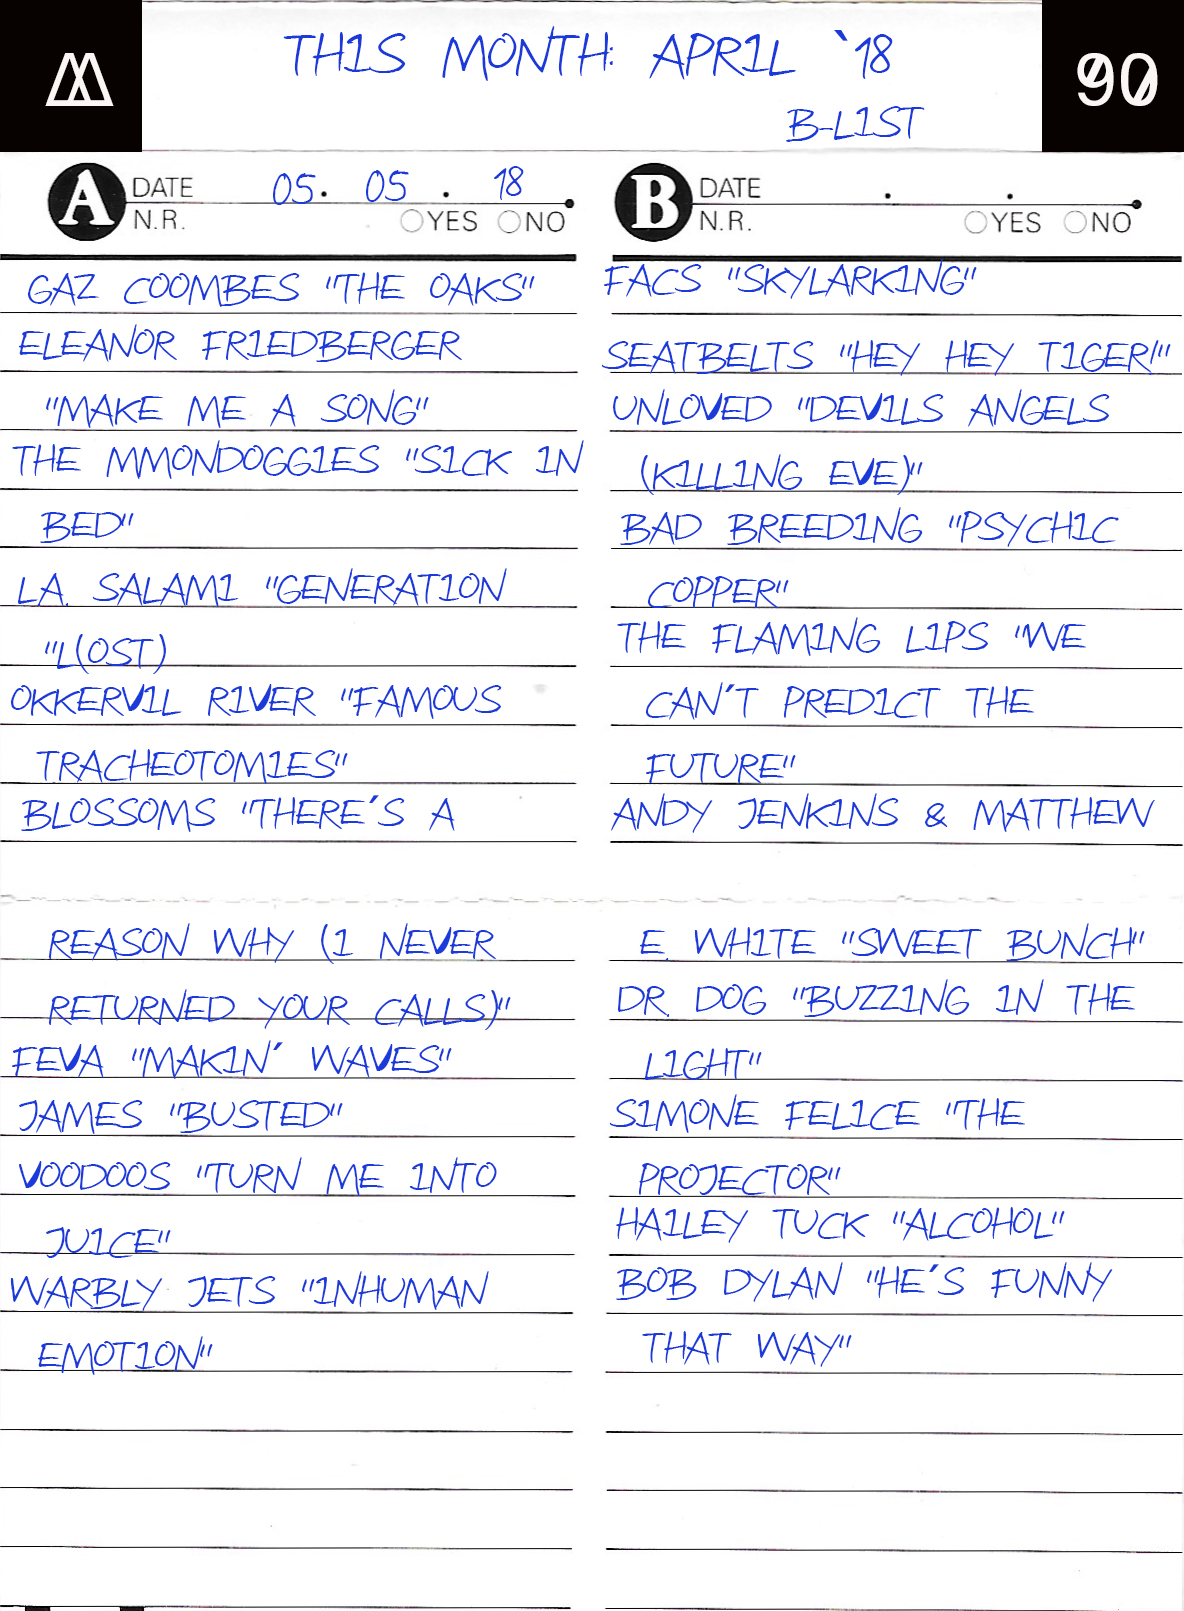 THIS MONTH: APRIL `18
90
B-LIST
A DATE 05. 05 . 18
N.R. YES NO
GAZ COOMBES "THE OAKS"
ELEANOR FRIEDBERGER
"MAKE ME A SONG"
THE MMONDOGGIES "SICK IN
BED"
L.A. SALAMI "GENERATION
"L(OST)
OKKERVIL RIVER "FAMOUS
TRACHEOTOMIES"
BLOSSOMS "THERE´S A
REASON WHY (I NEVER
RETURNED YOUR CALLS)"
FEVA "MAKIN´ WAVES"
JAMES "BUSTED"
VOODOOS "TURN ME INTO
JUICE"
WARBLY JETS "INHUMAN
EMOTION"
B DATE . .
N.R. YES NO
FACS "SKYLARKING"
SEATBELTS "HEY HEY TIGER!"
UNLOVED "DEVILS ANGELS
(KILLING EVE)"
BAD BREEDING "PSYCHIC
COPPER"
THE FLAMING LIPS "WE
CAN´T PREDICT THE
FUTURE"
ANDY JENKINS & MATTHEW
E. WHITE "SWEET BUNCH"
DR. DOG "BUZZING IN THE
LIGHT"
SIMONE FELICE "THE
PROJECTOR"
HAILEY TUCK "ALCOHOL"
BOB DYLAN "HE´S FUNNY
THAT WAY"